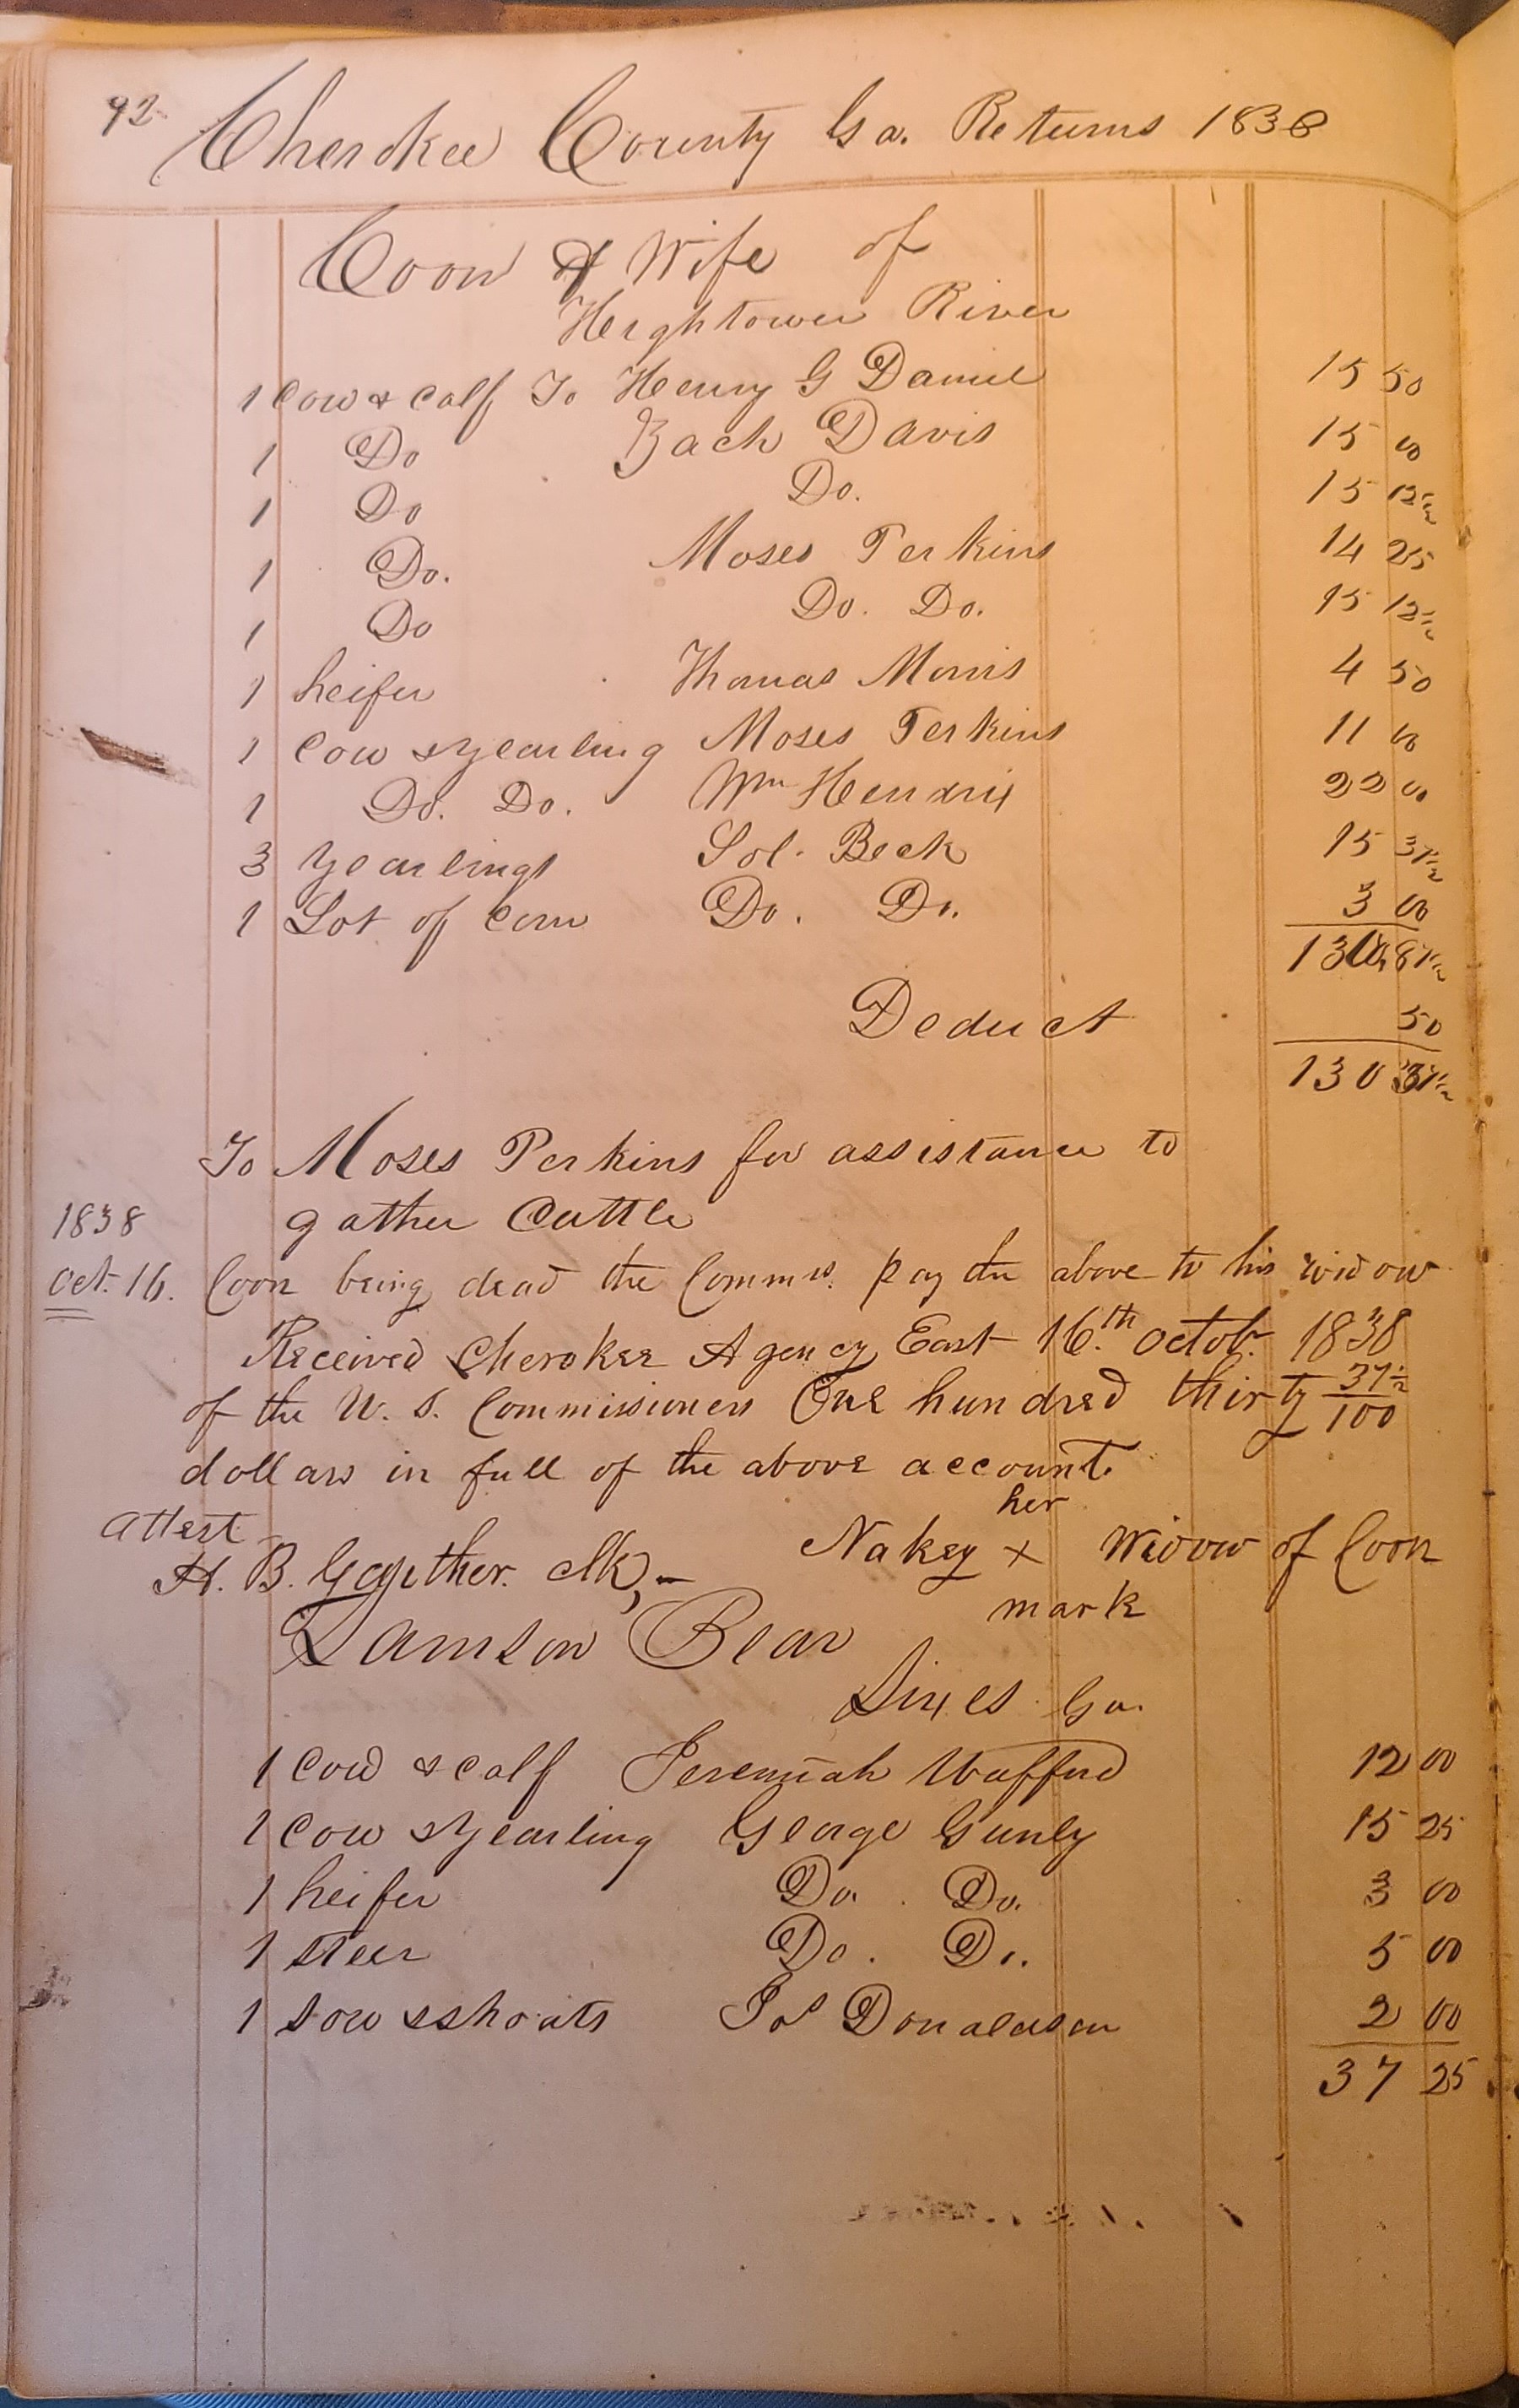 92
Cherokee County Ga. Returns 1838
Coon & Wife of
Hightower River
1 Cow & Calf To Henry G Daniel 15 50
1 Do Zach Davis 15 00
1 Do Do. 15 12½
1 Do. Moses Perkins 14 25
1 Do Do. Do. 15 12½
1 heifer Thomas Morris 4 50
1 Cow & Yearling Moses Perkins 11 00
1 Do. Do. Wm Hendrix 22 00
3 Yearlings Sol. Beck 15 37½
1 Lot of Corn Do. Do. 3 00
130 87½
Deduct 50
130 37½
To Moses Perkins for assistance to
gather Cattle
1838
Oct. 16. Coon being dead the Commrs. pay the above to his widow
Received Cherokee Agency East 16.th Octobr. 1838
of the U. S. Commissioners One hundred thirty 37½/100
dollars in full of the above account.
attest her
H. B. Gaither. Clk, Nakey x Widow of Coon
mark
Bear
Sixes Ga.
1 Cow & Calf Jeremiah Wafford 12 00
1 Cow & Yearling George Gunly 15 25
1 heifer Do. Do. 3 00
1 steer Do. Do. 5 00
1 Sow & Shoats Jos Donaldson 2 00
37 25